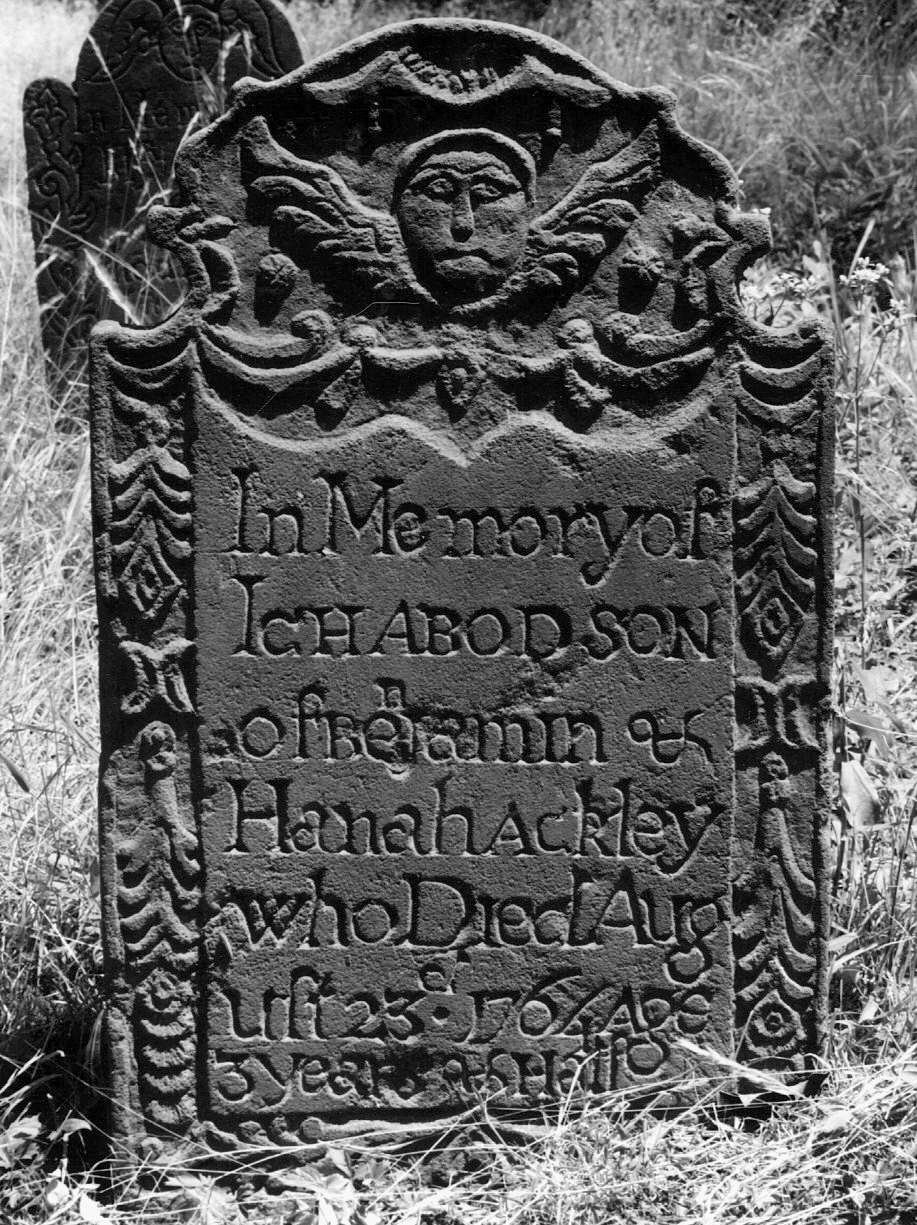 In Memory of
IcHABOD SON
of Beniamin &
Hanah Ackley
who Died Aug
uſt 23 d 1764 Age
3 years & Half
In Mem